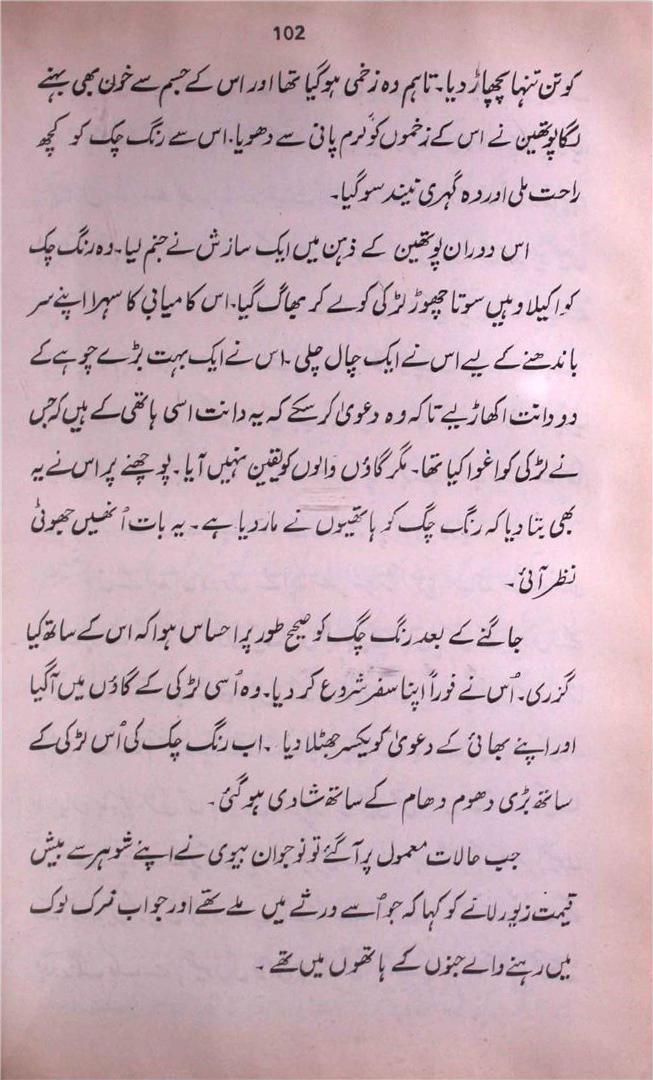 102
کو تن تنہا پچھاڑ دیا۔ تاہم وہ زخمی ہو گیا تھا اور اس کے جسم سے خون بھی بہنے
لگا پوتھین نے اس کے زخموں کو گرم پانی سے دھویا۔ اس سے رنگ چک کو کچھ
راحت ملی اور وہ گہری نیند سو گیا۔
اس دوران پوتھین کے ذہن میں ایک سازش نے جنم لیا۔ وہ رنگ چک
کو اکیلا وہیں سوتا چھوڑ لڑکی کو لے کر بھاگ گیا۔ اس کامیابی کا سہرا اپنے سر
باندھنے کے لیے اس نے ایک چال چلی۔ اس نے ایک بہت بڑے چوہے کے
دو دانت اکھاڑ لیے تاکہ وہ دعویٰ کر سکے کہ یہ دانت اسی ہاتھی کے ہیں کہ جس
نے لڑکی کو اغوا کیا تھا۔ مگر گاؤں والوں کو یقین نہیں آیا۔ پوچھنے پر اس نے یہ
بھی بتا دیا کہ رنگ چگ کو ہاتھیوں نے مار دیا ہے۔ یہ بات اُنھیں جھوٹی
نظر آئی۔
جاگنے کے بعد رنگ چگ کو صحیح طور پر احساس ہوا کہ اس کے ساتھ کیا
گزری۔ اُس نے فوراً اپنا سفر شروع کر دیا۔ وہ اُسی لڑکی کے گاؤں میں آگیا
اور اپنے بھائی کے دعویٰ کو یکسر جھٹلا دیا۔ اب رنگ چک کی اُس لڑکی کے
ساتھ بڑی دھوم دھام کے ساتھ شادی ہو گئی۔
جب حالات معمول پر آگئے تو نوجوان بیوی نے اپنے شوہر سے بیش
قیمت زیور لانے کو کہا کہ جو اُسے ورثے میں ملے تھے اور جو اب نمرک لوک
میں رہنے والے جنوں کے ہاتھوں میں تھے۔